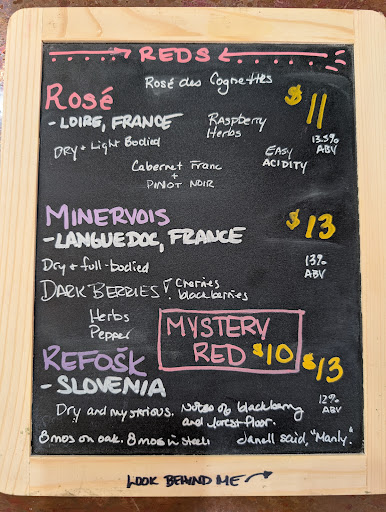 REDS
Rosé des Cognettes
Rosé $11
- LOIRE, FRANCE
Raspberry
Herbs
13.5%
ABV
DRY + Light Bodied
EASY
ACIDITY
Cabernet Franc
+
PINOT NOIR
MINERVOIS $13
- LANGUEDOC, FRANCE
Dry + full-bodied
13%
ABV
DARK BERRIES! Cherries
blackberries
Herbs
Pepper
MYSTERY
RED $10
REFOŠK $13
- SLOVENIA
12%
ABV
Dry and mysterious. Notes of blackberry
and forest floor.
8 mos on oak. 8 mos in steel
Janell said, "Manly."
LOOK BEHIND ME